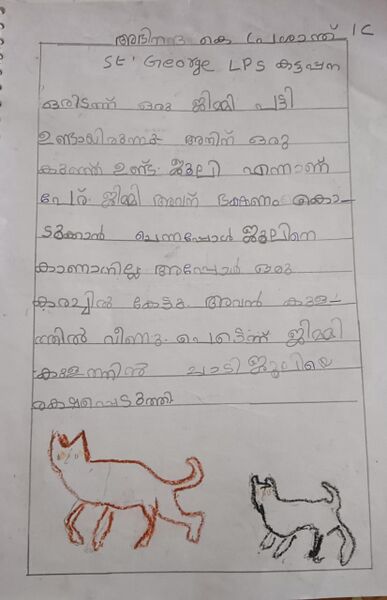 അഭിനന്ദ കെ പ്രശാന്ത് 1C
St' George LPS കട്ടപ്പന
ഒരിടത്ത് ഒരു ജിമ്മി പട്ടി
ഉണ്ടായിരുന്നു അതിന് ഒരു
കുഞ്ഞ് ഉണ്ട് ജൂലി എന്നാണ്
പേര് ജിമ്മി അവന് ഭക്ഷണം കൊ-
ടുക്കാൻ ചെന്നപ്പോൾ ജൂലിനെ
കാണാനില്ല അപ്പോൾ ഒരു
കരച്ചിൽ കേട്ടു അവൻ കുള-
ത്തിൽ വീണു. പെട്ടെന്ന് ജിമ്മി
കുളത്തിൽ ചാടി ജൂലിയെ
രക്ഷപ്പെടുത്തി